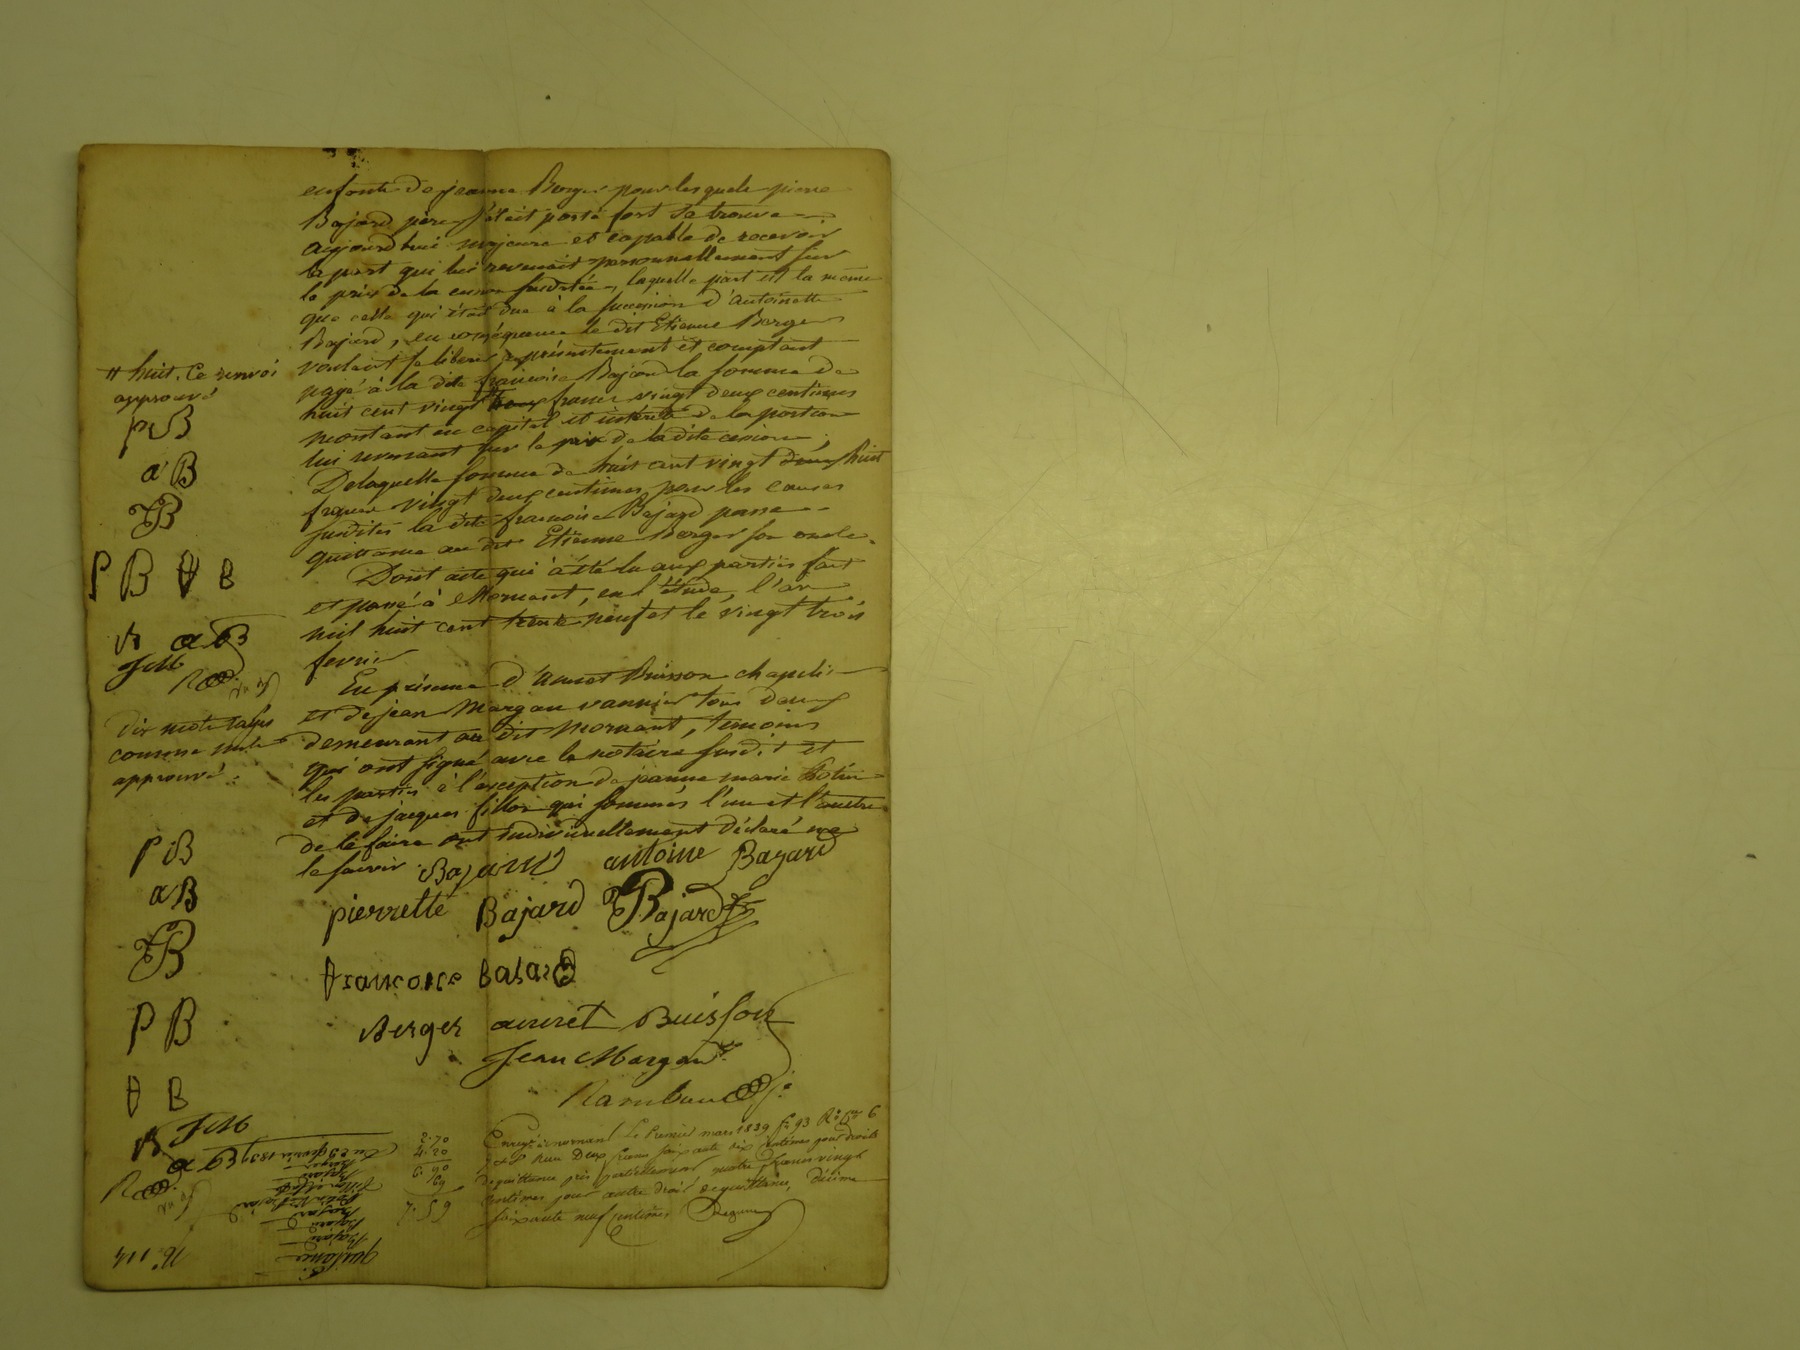 enfants de jeanne Berger pour lesquels pierre
Bajard père s'était porté fort se trouve
aujourd'hui majeure et capable de recevoir
la part qui lui revenait personnellement sur
le prix de la cession susditée, laquelle part est la même
que celle qui était due à la succession d'Antoinette
Bajard, en conséquence le dit Etienne Berger
voulant se liberer a présentement et comptant
payé à la dite françoise Bajard la somme de
huit cent vingt # francs vingt deux centimes
montant en capital et intérêts de la portion
lui revenant sur le prix de la dite cession;
De laquelle somme de huit cent vingt deux huit
francs vingt deux centimes pour les causes
susdites la dite françoise Bajard passe
quittance au dit Etienne Berger son oncle.
Dont acte qui a été lu aux parties fait
et passé à Mornant, en l'étude, l'an
mil huit cent trente neuf et le vingt trois
fevrier
En présence d'Annet Buisson chapelier
et de jean Margan vannier tous deux
demeurant au dit Mornant, temoins
qui ont signé avec le notaire susdit et
les parties à l'exception de jeanne marie
et de jacques fillon qui sommés l'un et l'autre
de le faire ont individuellement déclaré ne
le savoir
Bajard antoine Bagard
pierrette Bajard Bajard
francoise Bajard
Berger annet Buisson
Jean Margan
# huit. Ce renvoi
approuvé
PB
aB
JB
P B f B
B aB
JM
dix mots rayés
comme nuls
approuvé.
P B
aB
JB
P B
f B
B JM
a B
Enregé à mornant le Premier mars 1839 f° 93 R° Cse 6
7 & 8 Reçu Deux francs soixante dix centimes pour droits
de quittance prix quatre francs vingt
centimes pour autre droit de quittance, décime
soixante neuf centimes
2.70
4.20
6.90
69
7.59
Du 23 fevrier 1839
Berger
Bajard
Bajard
Bajard
Bajard
quittance
N° 114